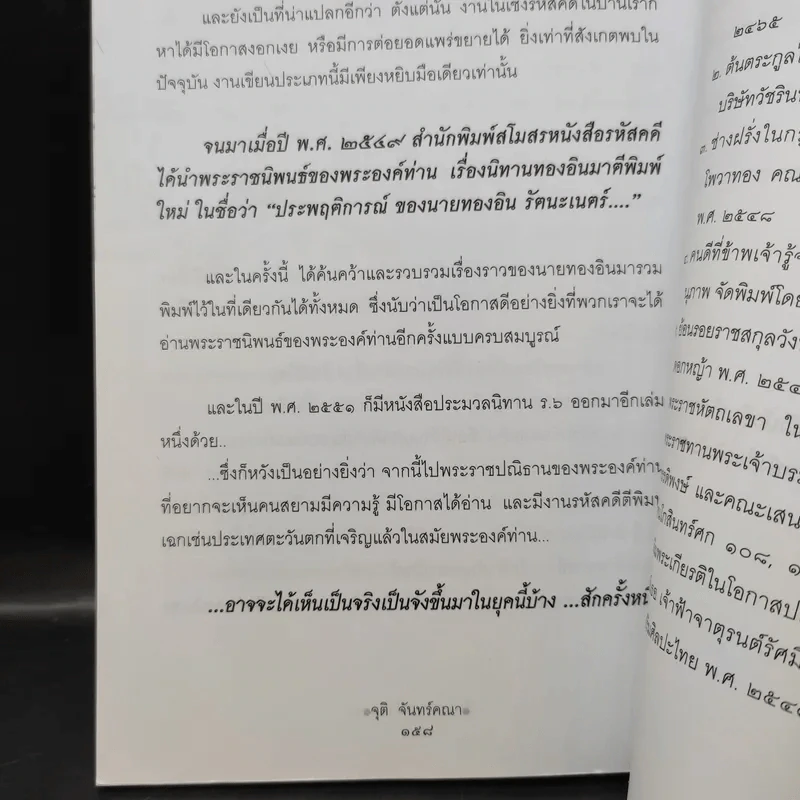 และยังเป็นที่น่าแปลกอีกว่า ตั้งแต่นั้น งานในเชิงรหัสคดีในบ้านเราก็
หาได้มีโอกาสงอกเงย หรือมีการต่อยอดแพร่ขยายได้ ยิ่งเท่าที่สังเกตพบใน
ปัจจุบัน งานเขียนประเภทนี้มีเพียงหยิบมือเดียวเท่านั้น
จนมาเมื่อปี พ.ศ. ๒๕๔๙ สำนักพิมพ์สโมสรหนังสือรหัสคดี
ได้นำพระราชนิพนธ์ของพระองค์ท่าน เรื่องนิทานทองอินมาตีพิมพ์
ใหม่ ในชื่อว่า “ประพฤติการณ์ ของนายทองอิน รัตนะเนตร์....”
และในครั้งนี้ ได้ค้นคว้าและรวบรวมเรื่องราวของนายทองอินมารวม
พิมพ์ไว้ในที่เดียวกันได้ทั้งหมด ซึ่งนับว่าเป็นโอกาสดีอย่างยิ่งที่พวกเราจะได้
อ่านพระราชนิพนธ์ของพระองค์ท่านอีกครั้งแบบครบสมบูรณ์
และในปี พ.ศ. ๒๕๕๑ ก็มีหนังสือประมวลนิทาน ร.๖ ออกมาอีกเล่ม
หนึ่งด้วย..
...ซึ่งก็หวังเป็นอย่างยิ่งว่า จากนี้ไปพระราชปณิธานของพระองค์ท่าน
ที่อยากจะเห็นคนสยามมีความรู้ มีโอกาสได้อ่าน และมีงานรหัสคดีตีพิมพ์
เฉกเช่นประเทศตะวันตกที่เจริญแล้วในสมัยพระองค์ท่าน...
...อาจจะได้เห็นเป็นจริงเป็นจังขึ้นมาในยุคนี้บ้าง ...สักครั้งหนึ่
จุติ จันทร์คณา
๑๕๘
๒๔๖๕
๒. ต้นตระกูล
บริษัทวัชริน
๓. ช่างฝรั่งในก
โพวาทอง คณ
พ.ศ. ๒๕๔๘
คนดีที่ข้าพเจ้ารู้จ
นุภาพ จัดพิมพ์โดย
ย้อนรอยราชสกุลวัง
ดอกหญ้า พ.ศ. ๒๕๔
พระราชหัตถเลขา ใน
พระราชทานพระเจ้าบรร
และคณะเสน
โกสินทร์ศก ๑๐๘, ๑
พระเกียรติในโอกาสป
เจ้าฟ้าจาตุรนต์รัศมี
ศิลปะไทย พ.ศ. ๒๕๔